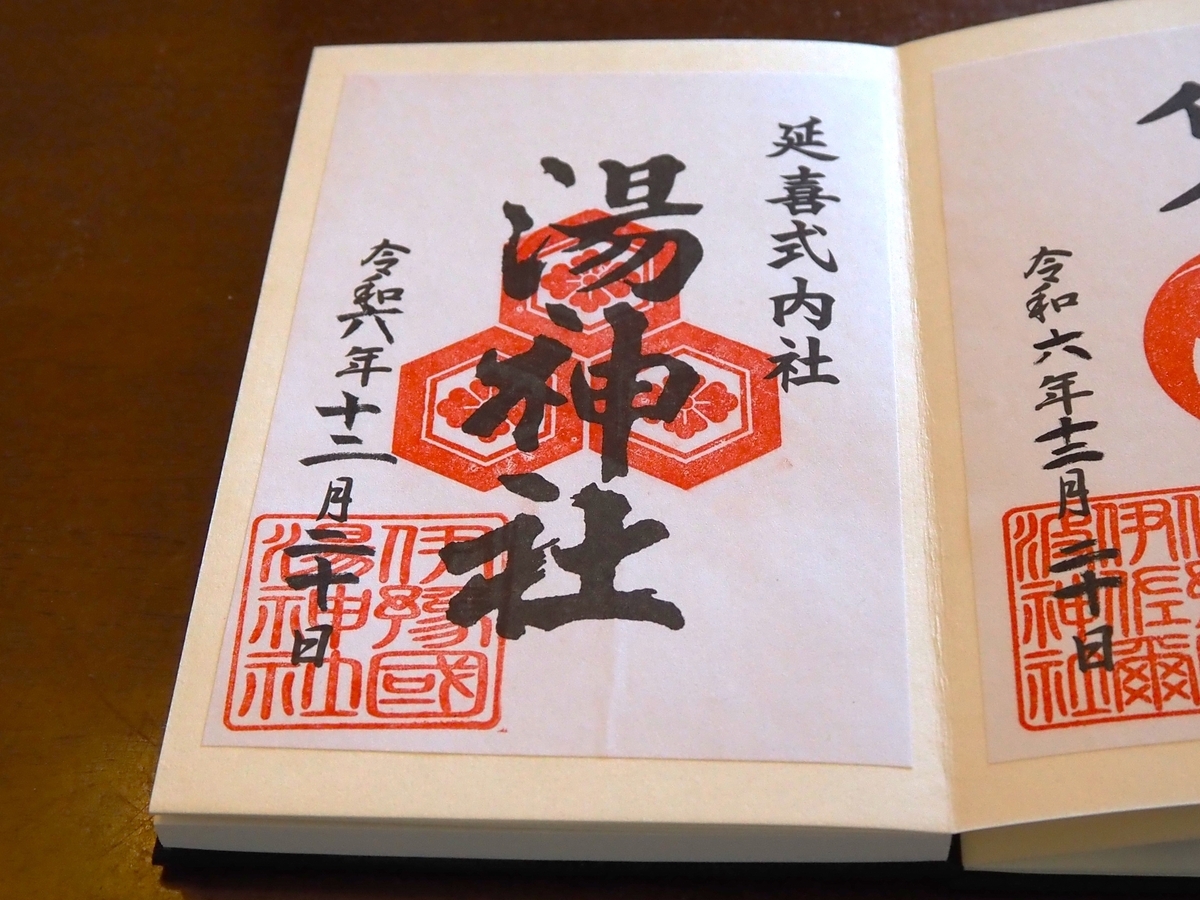 令和六年十二月二十日
伊佐爾
波神社
延喜式内社
湯神社
令和六年十二月二十日
伊豫國
湯神社